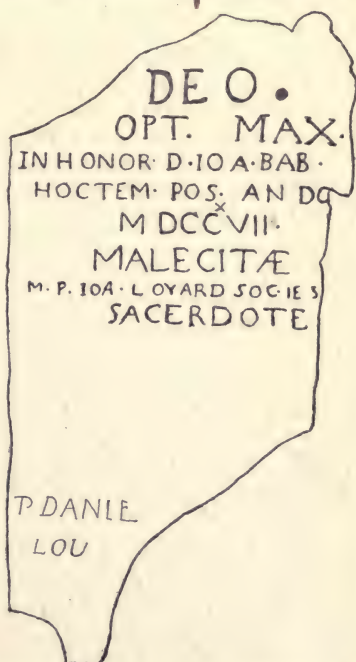 DEO.
OPT. MAX.
IN HONOR· D·IOA·BAB·
HOCTEM· POS· AN DO
M DCCXVII·
MALECITÆ
M. P. IOA· LOYARD SOC·IES
SACERDOTE
P DANIE
LOU